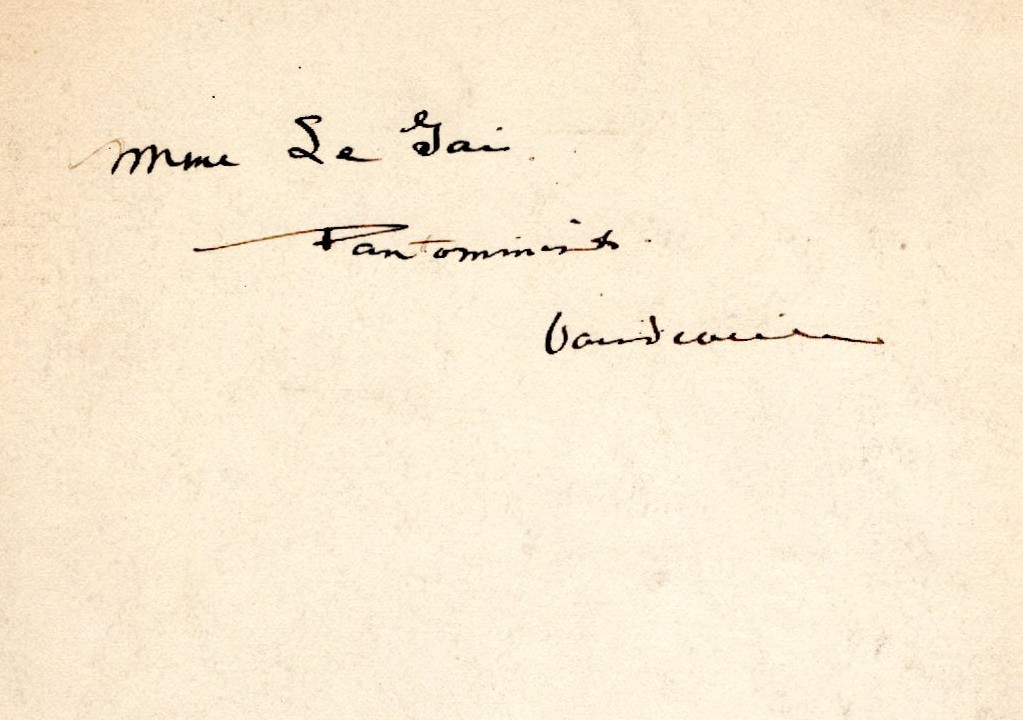 Mme Le Gai
Pantomimist
Vaudeville